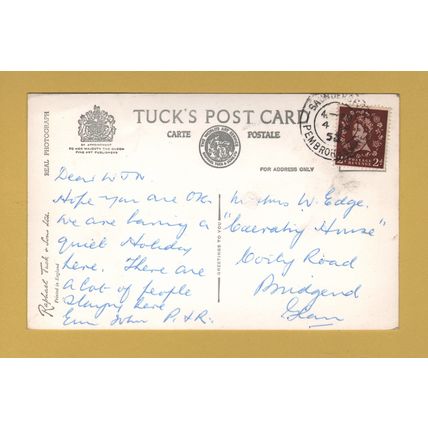 TUCK'S POST CARD
CARTE POSTALE
BY APPOINTMENT
TO HER MAJESTY THE QUEEN
FINE ART PUBLISHERS
FOR ADDRESS ONLY
REAL PHOTOGRAPH
Raphael Tuck & Sons Ltd.
Printed in England
GREETINGS TO YOU
Dear W
Hope you are OK.
We are having a
quiet Holiday
here. There are
a lot of people
staying here
John P. & R.
W. Edge.
House"
Road
Bridgend
Glam
PEMBRO
POSTAGE
REVENUE
2D 2D